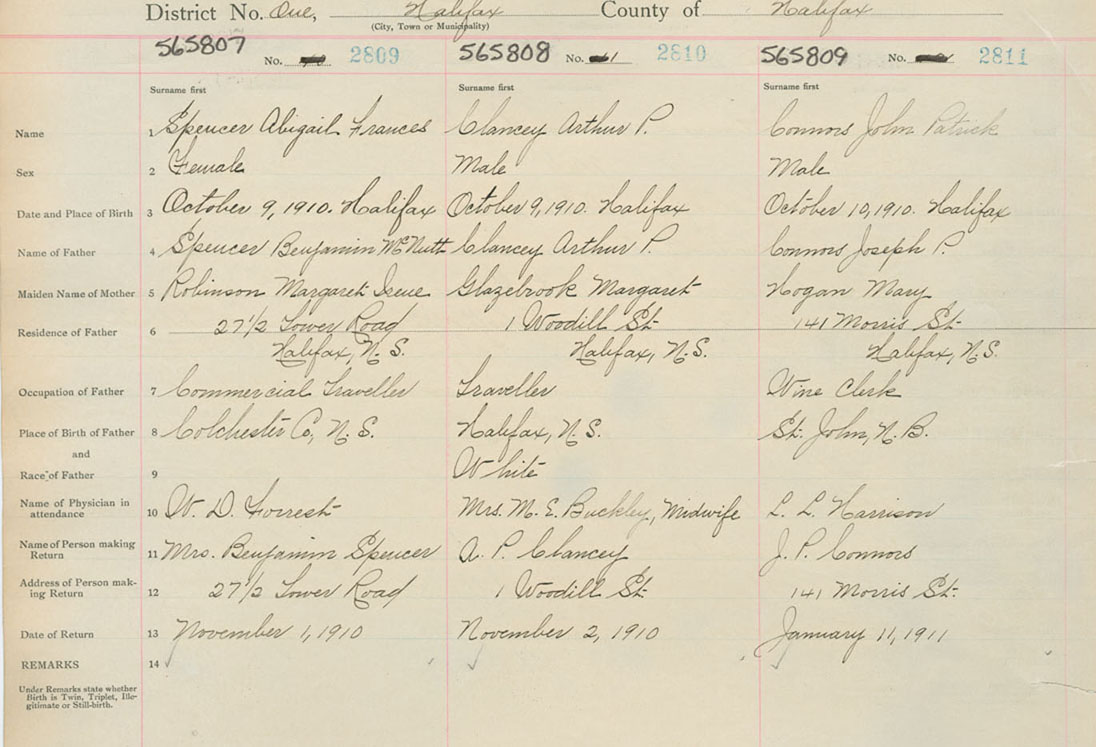 District No. One, Halifax County of Halifax
(City, Town or Municipality)
565807 No. 2809 565808 No. 2810 565809 No. 2811
Surname first Surname first Surname first
Name 1 Spencer Abigail Frances Clancey Arthur P. Connors John Patrick
Sex 2 Female Male Male
Date and Place of Birth 3 October 9, 1910. Halifax October 9, 1910. Halifax October 10, 1910. Halifax
Name of Father 4 Spencer Benjamin McNutt Clancey Arthur P. Connors Joseph P.
Maiden Name of Mother 5 Robinson Margaret Irene Glazebrook Margaret Hogan Mary
Residence of Father 6 27 1/2 Tower Road 1 Woodill St. 141 Morris St.
Halifax, N.S. Halifax, N.S. Halifax, N.S.
Occupation of Father 7 Commercial Traveller Traveller Wine Clerk
Place of Birth of Father 8 Colchester Co, N.S. Halifax, N.S. St. John, N.B.
and
Race of Father 9 White
Name of Physician in
attendance 10 W. D. Forrest Mrs. M. E. Buckley, Midwife L. L. Harrison
Name of Person making
Return 11 Mrs. Benjamin Spencer A. P. Clancey J. P. Connors
Address of Person mak-
ing Return 12 27 1/2 Tower Road 1 Woodill St. 141 Morris St.
Date of Return 13 November 1, 1910 November 2, 1910 January 11, 1911
REMARKS 14
Under Remarks state whether
Birth is Twin, Triplet, Ille-
gitimate or Still-birth.